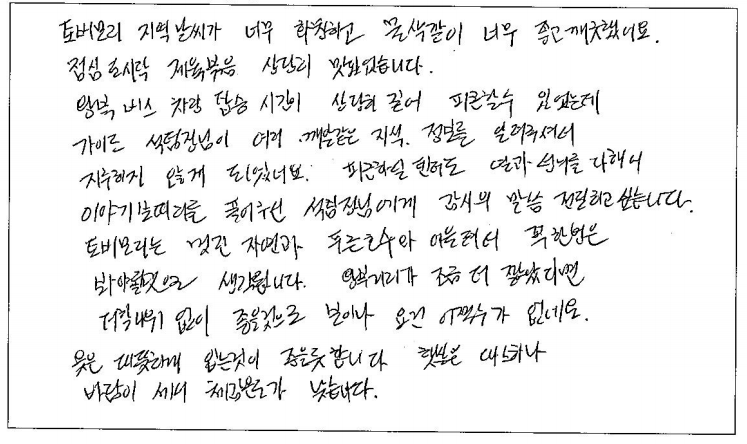 토버모리 지역 날씨가 너무 화창하고 물색깔이 너무 좋고 깨끗했어요.
점심 도시락 제육볶음 상당히 맛있었습니다.
왕복 버스 차량 탑승 시간이 상당히 길어 피곤할수 있었는데
가이드 석팀장님이 여러 깨알같은 지식, 정보를 알려주셔서
지루하지 않게 되었어요. 피곤하실 텐데도 열과 성의를 다해서
이야기 보따리를 풀어주신 석팀장님에게 감사의 말씀 전달하고 싶습니다.
토버모리는 멋진 자연과 푸른호수와 어울려서 꼭 한번은
봐야할것으로 생각됩니다. 왕복거리가 조금 더 짧았다면
더할나위 없이 좋을것으로 보이나 요건 어쩔수가 없네요.
옷은 따뜻하게 입는것이 좋을듯 합니다 햇살은 따스하나
바람이 세서 체감온도가 낮습니다.